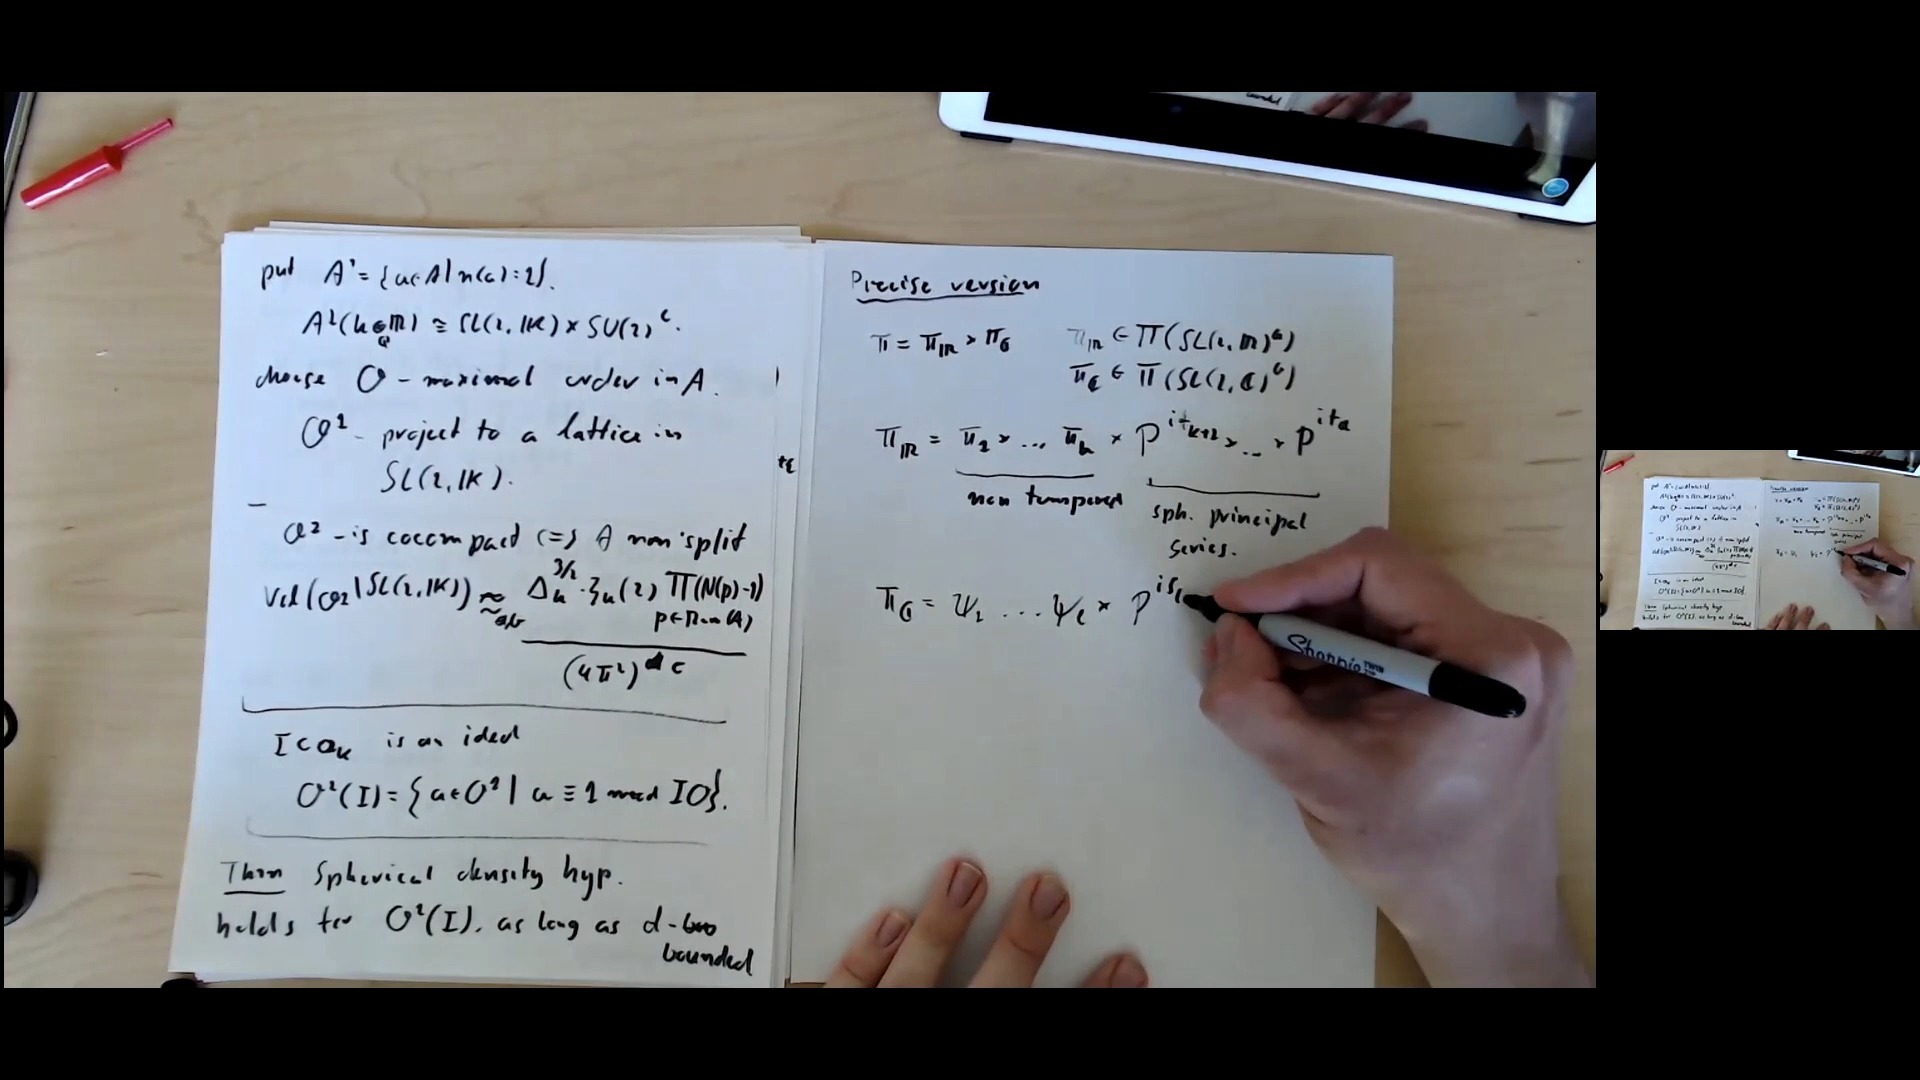 put A¹ = {a∈A | n(a)=1}.
A¹(k⊗ℝ) ≅ SL(2,𝕂) × SU(2)ᶜ.
ℚ
choose O - maximal order in A.
O¹ - project to a lattice in
SL(2,𝕂).
O¹ - is cocompact <=> A non split
Vol(O¹\SL(2,𝕂)) ≈ Δₖ^{3/2} · ζₖ(2) ∏ (N(p)-1)
p∈Ram(A)
(4π²)
I ⊂ Oₖ is an ideal
O¹(I) = {a∈O¹ | a ≡ 1 mod IO}.
Thm Spherical density hyp.
holds for O¹(I), as long as d-
bounded
Precise version
π = π_ℝ × π_ℂ
π_ℝ ∈ Π(SL(2,ℝ)ᵃ)
π_ℂ ∈ Π(SL(2,ℂ)ᵇ)
π_ℝ = π₁ × ... πₖ × P^{it_{k+1}} × ... × P^{it_a}
non tempered
sph. principal
series.
π_ℂ = ψ₁ ... ψ_l × P^{is_l
Sharpie
TWIN
TIP